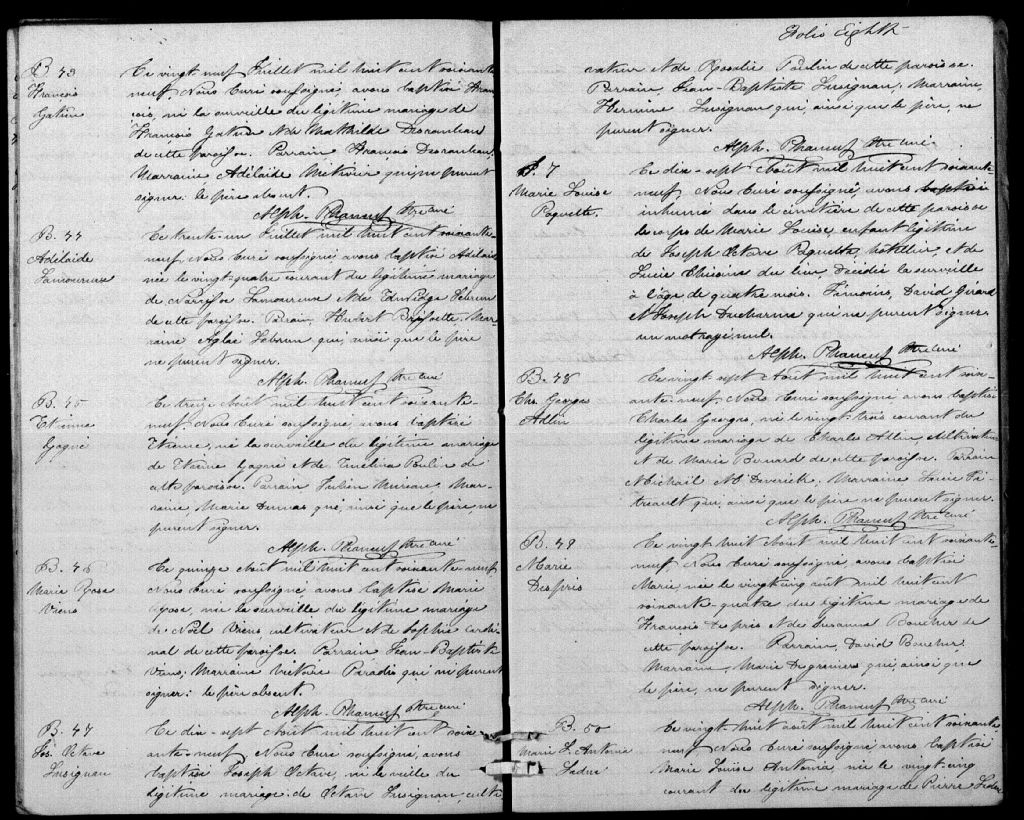 B. 43
François
Gatien
Ce vingt-neuf Juillet mil huit cent soixante
neuf, Nous Curé soussigné, avons baptisé Fran
çois, né la surveille du légitime mariage de
François Gatien et de Mathilde Desrouleau
de cette paroisse. Parrain François Desrouleau,
Marraine Adélaide Metivier qui, ne purent
signer: le père absent.
Alph. Phaneuf Ptre Curé
B. 44
Adélaide
Lamoureux
Ce trente-un Juillet mil huit cent soixante-
neuf, Nous Curé soussigné, avons baptisé Adélaide
née le vingt-quatre courant du légitime mariage
de Narcisse Lamoureux et de Edwidge Lebrun
de cette paroisse. Parrain, Hubert Brissette, Mar-
raine Aglaé Lebrun qui, ainsi que le père
ne purent signer.
Alph. Phaneuf Ptre Curé
B. 45
Etienne
Gagné
Ce treize Août mil huit cent soixante-
neuf Nous Curé soussigné, avons baptisé
Etienne, né la surveille du légitime mariage
de Etienne Gagné et de Emélina Poulin de
cette paroisse. Parrain Julien Mar-
raine, Marie Dumas qui, ainsi que le père, ne
purent signer.
Alph. Phaneuf Ptre Curé
B. 46
Marie Rose
Viens
Ce quinze Août mil huit cent soixante-neuf
Nous Curé soussigné, avons baptisé Marie
Rose, née la surveille du légitime mariage
de Noël Viens, cultivateur et de Sophie Cardi-
nal de cette paroisse. Parrain Jean-Baptiste
Viens, Marraine Victoire Paradis qui ne purent
signer: le père absent.
Alph. Phaneuf Ptre Curé
B. 47
Jos. Octave
Lusignan
Ce dix-sept Août mil huit cent soix
ante-neuf Nous Curé soussigné, avons
baptisé Joseph Octave, né la veille du
légitime mariage de Octave Lusignan, culti
Folio Eighth
vateur et de Rosalie Poulin de cette paroisse.
Parrain, Jean-Baptiste Lusignan, Marraine,
Hermine Lusignan qui, ainsi que le père, ne
purent signer.
Alph. Phaneuf Ptre Curé
S. 7
Marie Louise
Paquette.
Ce dix-sept Août mil huit cent soixante
neuf, Nous Curé soussigné, avons baptisé
inhumé dans le cimetière de cette paroisse
le corps de Marie Louise, enfant légitime
de Joseph Octave Paquette, hôtellier, et de
Lucie du lieu, décédée la surveille
à l'âge de quatre mois. Témoins, David Girard
et Joseph Ducharme qui ne purent signer.
un mot rayé, nul.
Alph. Phaneuf Ptre Curé
B. 48
Chs. George
Adlin
Ce vingt-sept Août mil huit cent soix-
ante-neuf, Nous Curé soussigné avons baptisé
Charles George, né le vingt-trois courant du
légitime mariage de Charles Adlin, cultivateur
et de Marie Benard de cette paroisse. Parrain
Michail Mc Daverick, Marraine Lucie Té-
treault qui, ainsi que le père ne purent signer.
Alph. Phaneuf Ptre Curé
B. 49
Marie
Despris
Ce vingt huit Août mil huit cent soixante-
neuf Nous Curé soussigné, avons baptisé
Marie, née le vingt-cinq août mil huit cent
soixante-quatre du légitime mariage de
François Despris et de Susanna Boucher de
cette paroisse. Parrain, David Boucher,
Marraine, Marie Desgreniers qui, ainsi que
le père, ne purent signer.
Alph. Phaneuf Ptre Curé
B. 50
Marie L. Antonia
Leduc
Ce vingt huit août mil huit cent soixante-
neuf Nous Curé soussigné avons baptisé
Marie Louise Antonia, née le vingt-cinq
courant du légitime mariage de Pierre Leduc